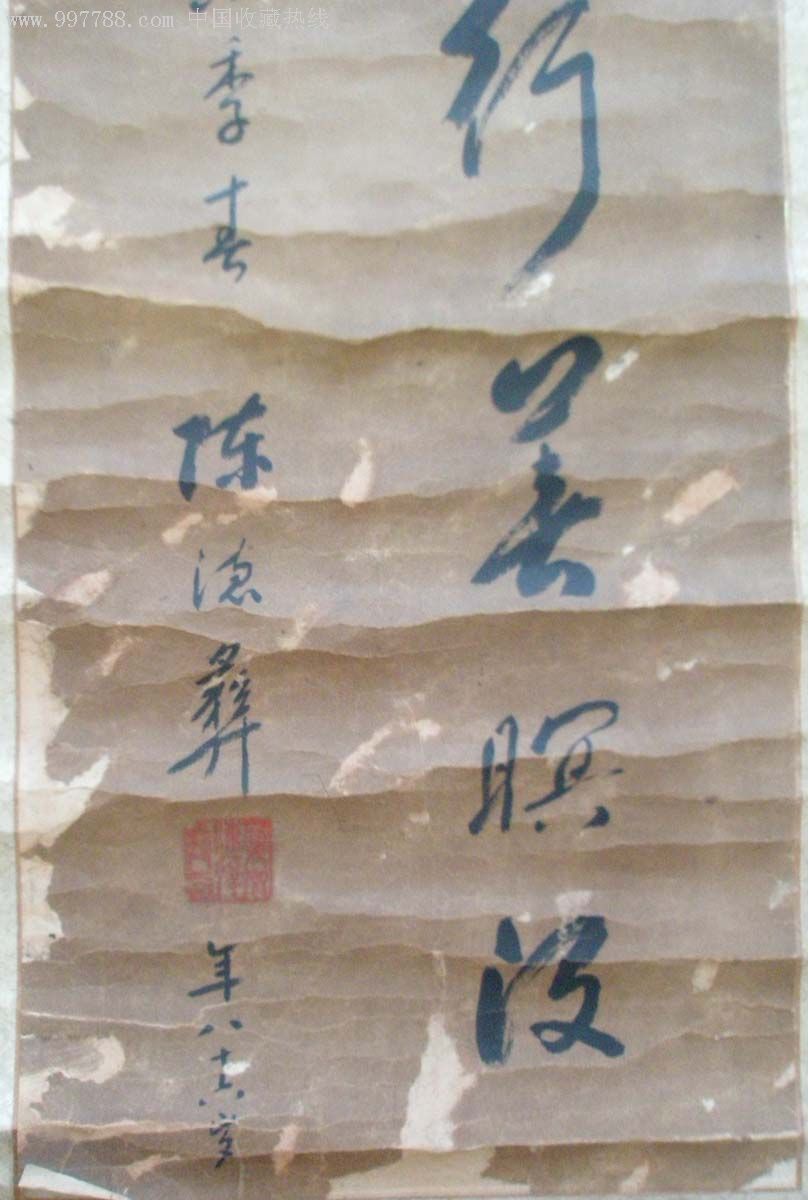 www.997788.com 中国收藏热线
行暝没
季春 陳德彝 年八十六岁